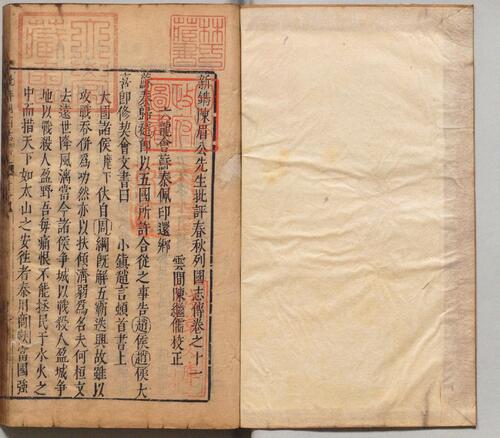 新鐫陳眉公先生批評春秋列國志傳卷之十一
雲間陳繼儒校正
六龍會蘇秦佩印還鄉
蘇秦歸趙即以五國所許合從之事告趙侯趙侯大
喜即修契會文書曰 小鎮趙言頓首書上
大國諸侯麾下伏自周綱既解五霸迭興故雖以
攻戰吞併為功然亦以扶傾濟弱為名夫何桓文
去遠世降風漓當今諸侯爭城以戰殺人盈城爭
地以戰殺人盈野吾每痛恨不能拯民于水火之
中而措天下如太山之安徃者秦用商鞅富國強
林氏
藏書